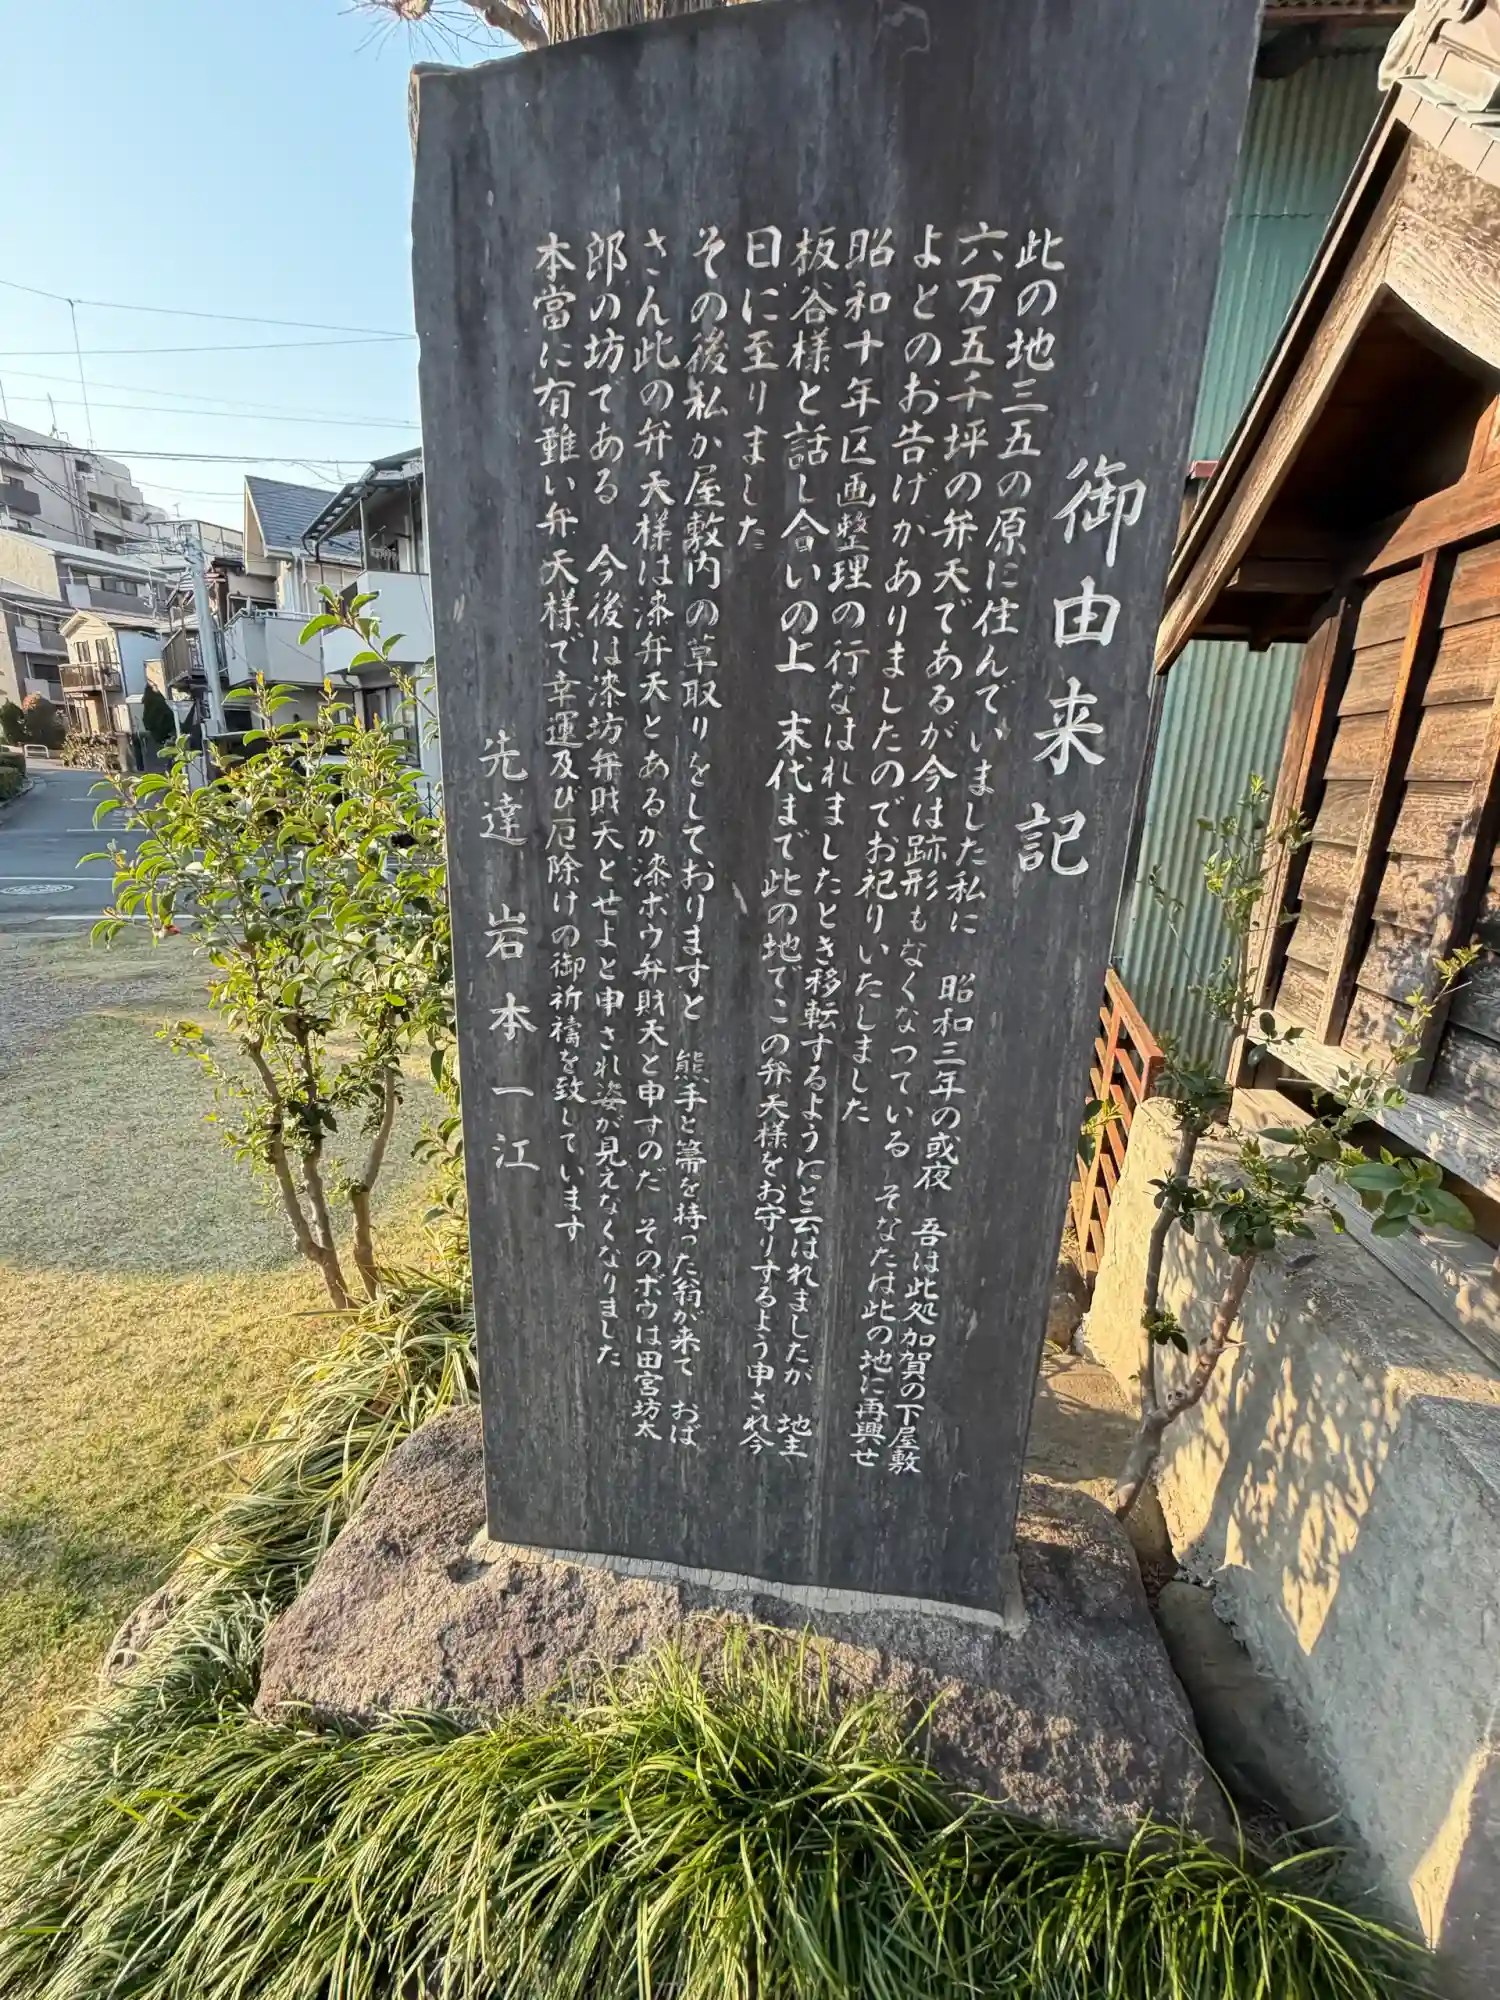 御由来記
此の地三五の原に住んでいました私に 昭和三年の或夜 吾は此処加賀の下屋敷
六万五千坪の弁天であるが今は跡形もなくなつている そなたは此の地に再興せ
よとのお告げがありましたのでお祀りいたしました
昭和十年区画整理の行なはれましたとき移転するようにと云はれましたが 地主
板谷様と話し合いの上 末代まで此の地でこの弁天様をお守りするよう申され今
日に至りました
その後私か屋敷内の草取りをしておりますと 熊手と箒を持った翁が来て おば
さん此の弁天様は漆弁天とあるか漆ホウ弁財天と申すのだ そのボウは田宮坊太
郎の坊である 今後は漆坊弁財天とせよと申され姿が見えなくなりました
本當に有難い弁天様で幸運及び厄除けの御祈禱を致しています
先達 岩本一江